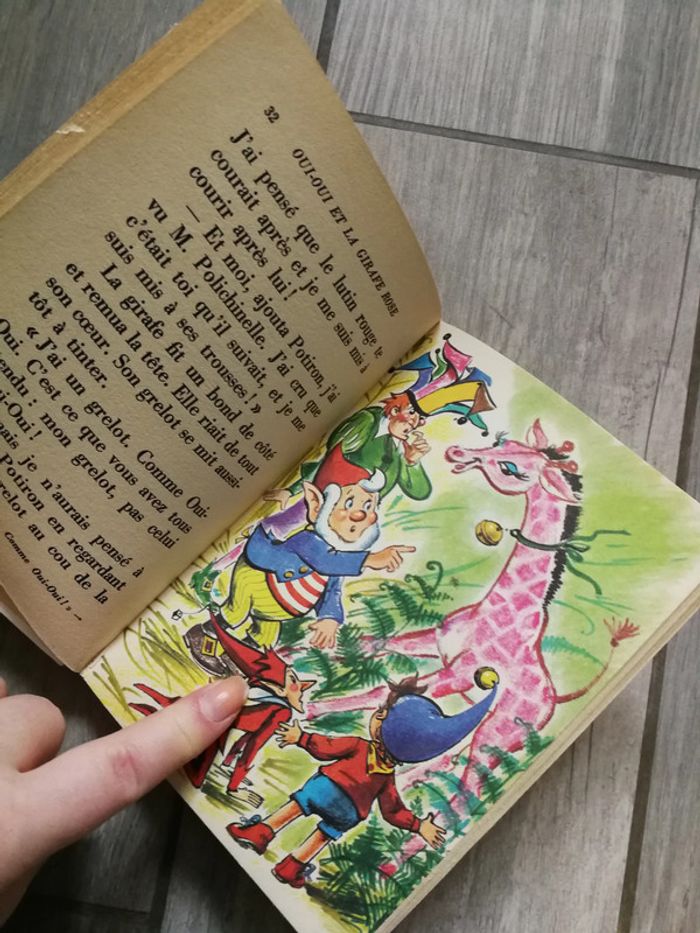 32
OUI-OUI ET LA GIRAFE ROSE
J'ai pensé que le lutin rouge te
courait après et je me suis mis à
courir après lui!
— Et moi, ajouta Potiron, j'ai
vu M. Polichinelle. J'ai cru que
c'était toi qu'il suivait, et je me
suis mis à ses trousses! »
La girafe fit un bond de côté
et remua la tête. Elle riait de tout
son cœur. Son grelot se mit aussi-
tôt à tinter.
« J'ai un grelot. Comme Oui-
Oui. C'est ce que vous avez tous
mon grelot, pas celui
je n'aurais pensé à
Potiron en regardant
au cou de la
Comme Oui-Oui! » →